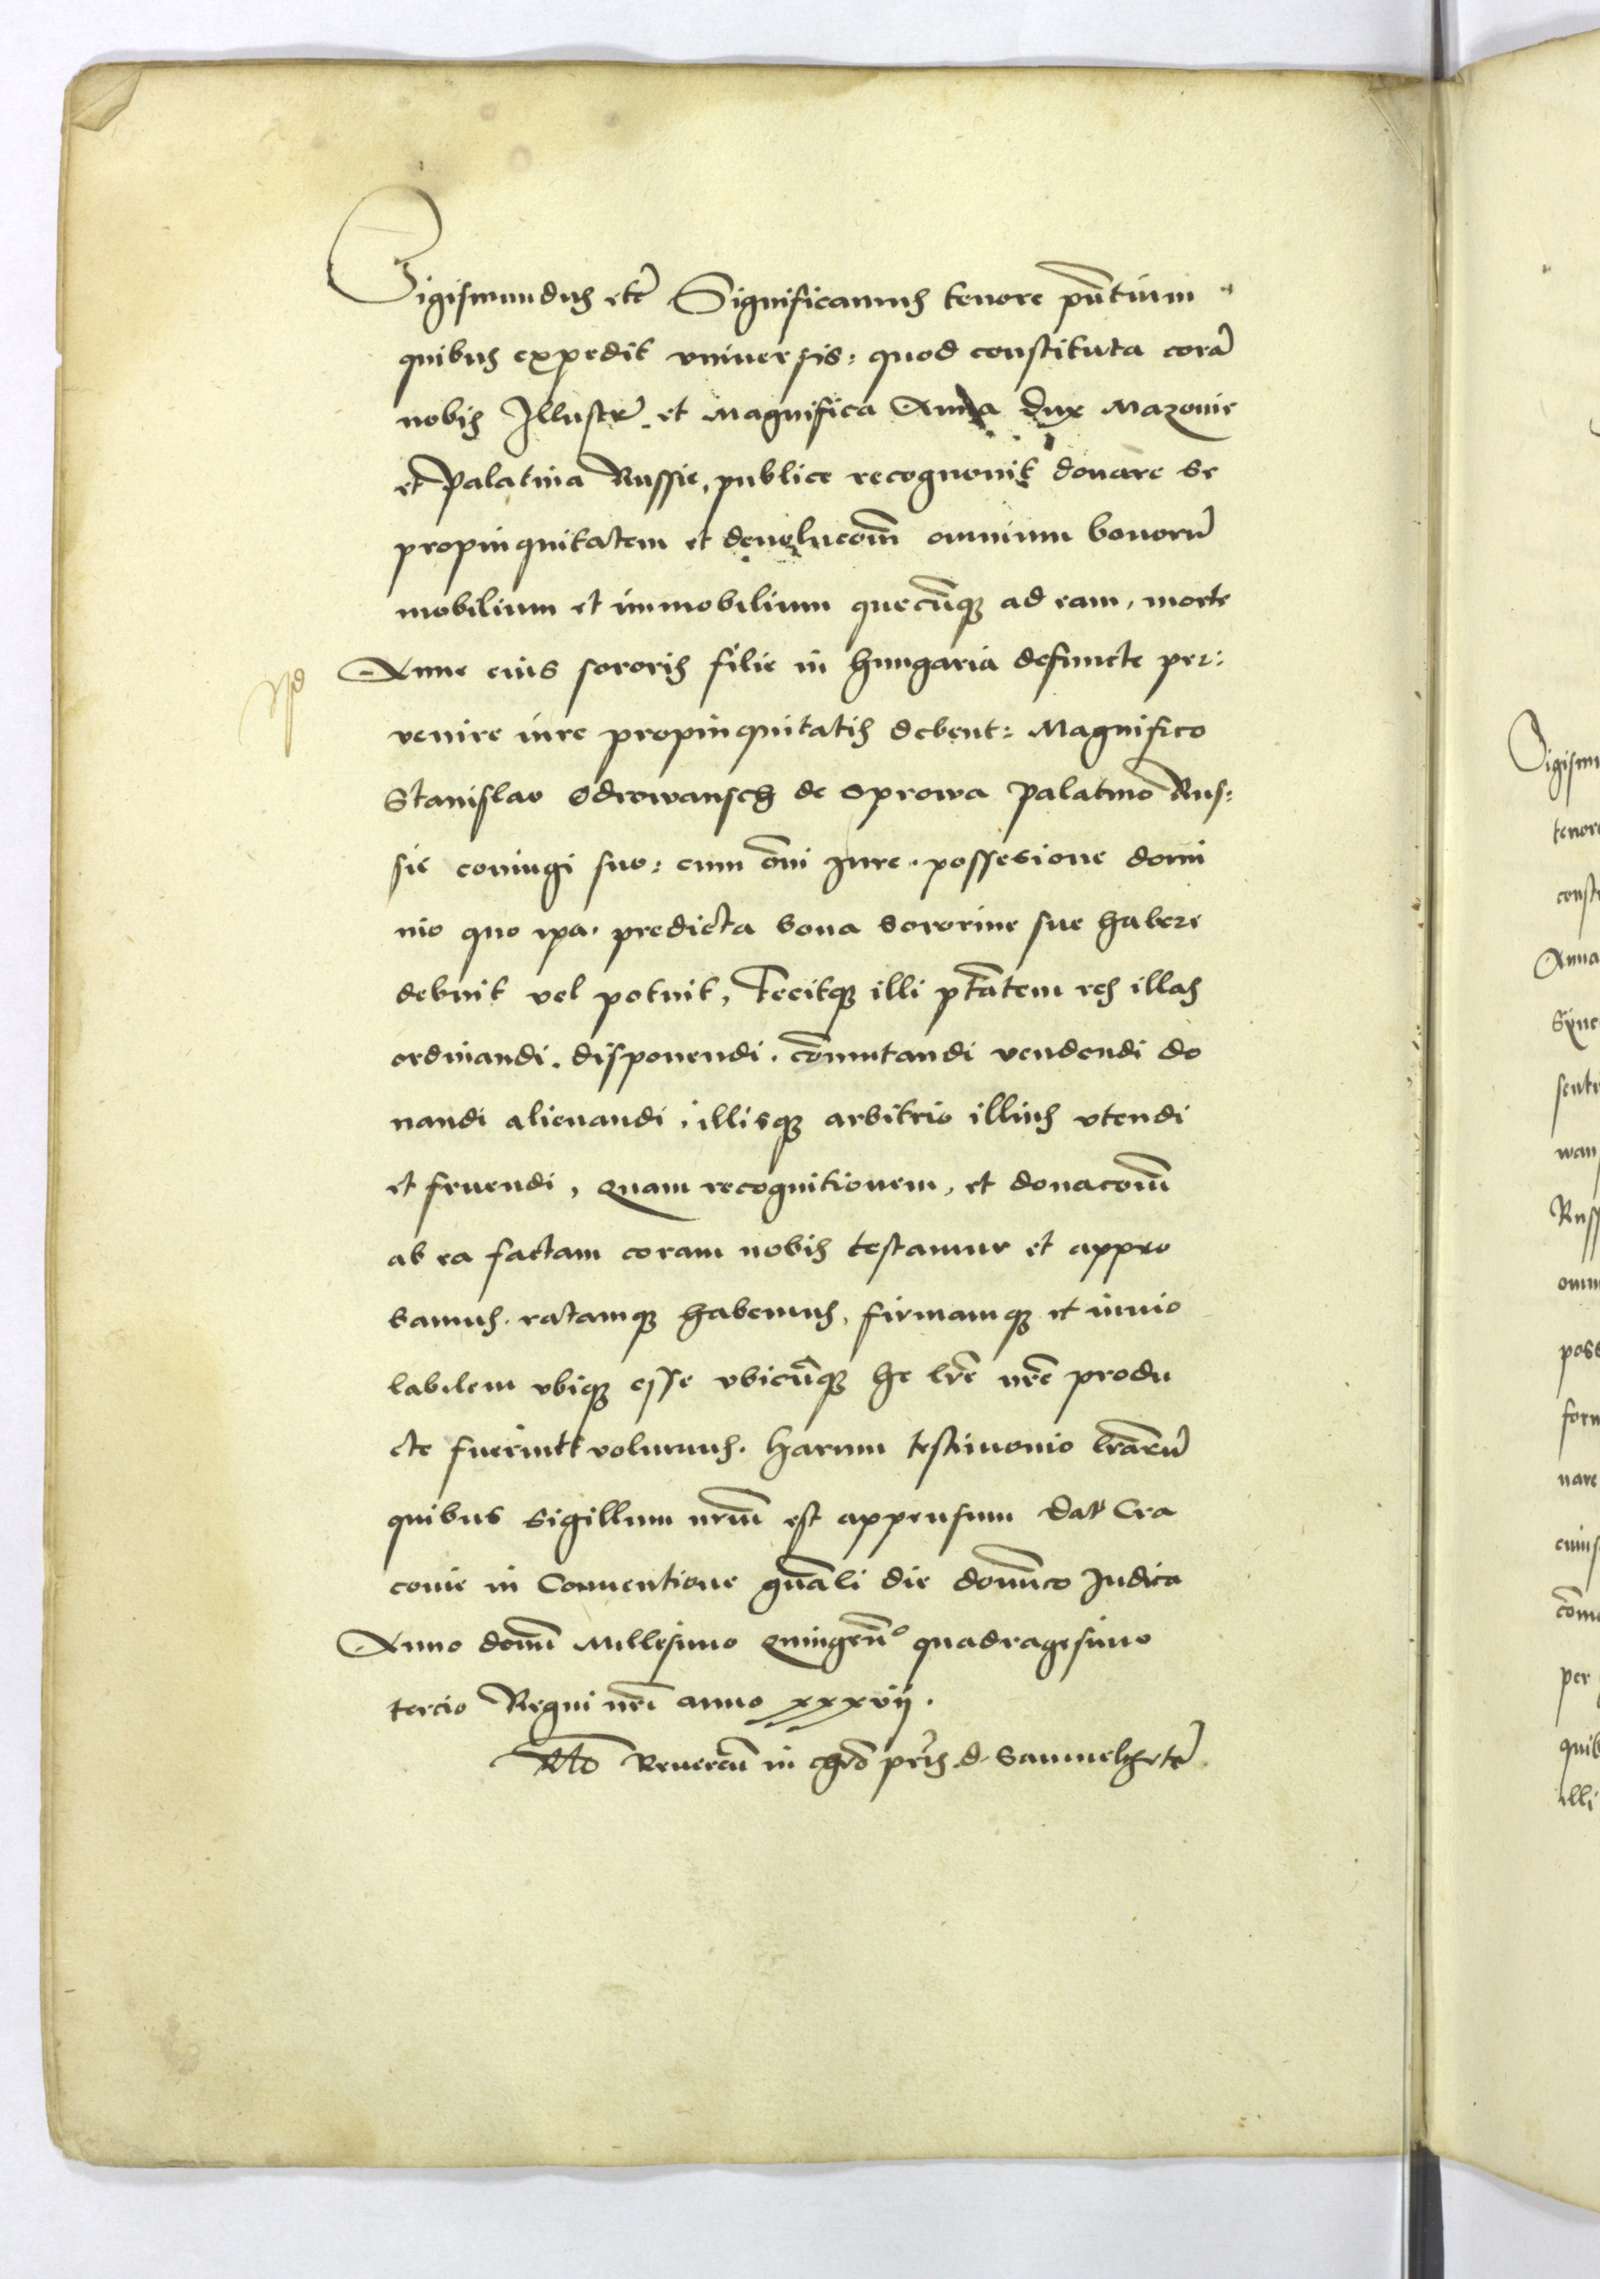 Sigismundus etc̃ Significamus tenore pñtium
quibus expedit vniuersis: quod constituta corã
nobis Illustr̃ et Magnifica Anna Dux Mazouie
et Palatina Russie, publice recognouit donare se
propinquitatem et deuolucom̃ omnium bonorũ
mobilium et immobilium quecũq ad eam, morte
Anne eius sororis filie in Hungaria defuncte per:
venire iure propinquitatis debent: Magnifico
Stanislao Odrowansch de Sprowa Palatino Rus:
sie coniugi suo: cum õni Iure. possesione domi
nio quo ipa. predicta bona sororine sue habere
debuit vel potuit, Fecitq illi ptãtem res illas
ordinandi. disponendi. cõmutandi vendendi do
nandi alienandi, illisq arbitrio illius vtendi
et fruendi, Quam recognitionem, et donacom̃
ab ea factam coram nobis testamur et appro
bamus. ratamq habemus, firmamq et inuio
labilem vbiq esse vbicũq he lrẽ nrẽ produ
cte fuerint volumus. Harum testimonio lrãrũ
quibus Sigillum nrũm est appensum Dat̃ Cra
couie in Conuentione gnãli die domĩnco Iudica
Anno domĩ Millesimo Quingenñ⁰ quadragesimo
tercio Regni nrĩ anno xxxvij.
Rlõ Reuerẽn in chrõ pr̃is d. Samuelis etc̃
Sigism
tenor
const
Anna
sent
wan
Russ
poss
nare
per
quib
illi